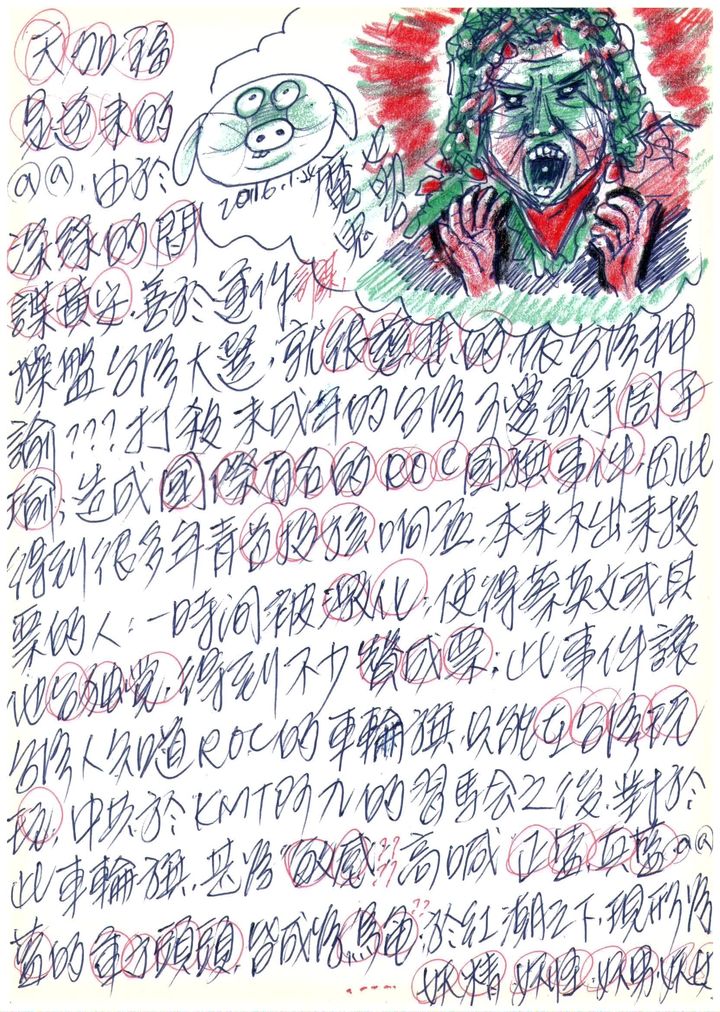 天加福
是逆來的
@@,由於
深綠的間
諜黃安,善於運作
訓練,
2016.1.
魔 鬼
也 明 台
操盤台灣大選,就很慈悲的,依台灣神
諭???打殺未成年的台灣子邊歌手周子
瑜;造成國際有名的ROC國旗事件,因此
得到很多年青首投族响应,本來不出來投
票的人;一時间被激化;使得蔡英文或其
他台独党,得到不少贊成票;此事件讓
台灣人知道ROC的車輪旗,只能在台灣玩
玩,中共於KMT阿九的習馬会之後,對於
此車輪旗,甚為敏感??高喊正藍血藍@@
藍的軍方頭頭,皆成為馬龟??於紅潮之下,現形為
妖精妖怪,妖男妖女